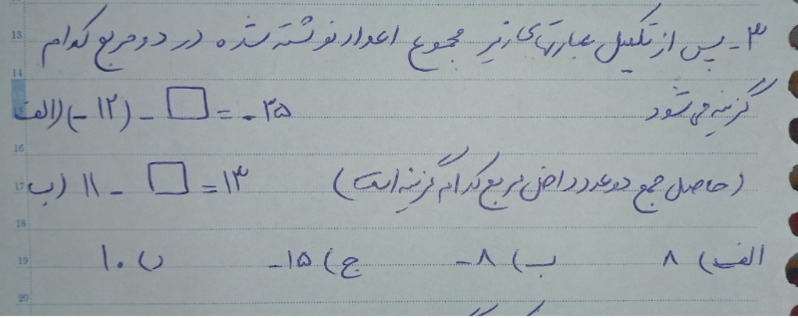 ۳- پس از تکمیل عبارتهای زیر مجموع اعداد نوشته شده در دو مربع کدام
گزینه می شود
الف) (-۱۲) - □ = -۲۵
ب) ۱۱ - □ = ۱۳ (حاصل جمع دو عدد داخل مربع کدام گزینه است)
الف) ۸ ب) -۸ ج) -۱۵ د) ۱۰